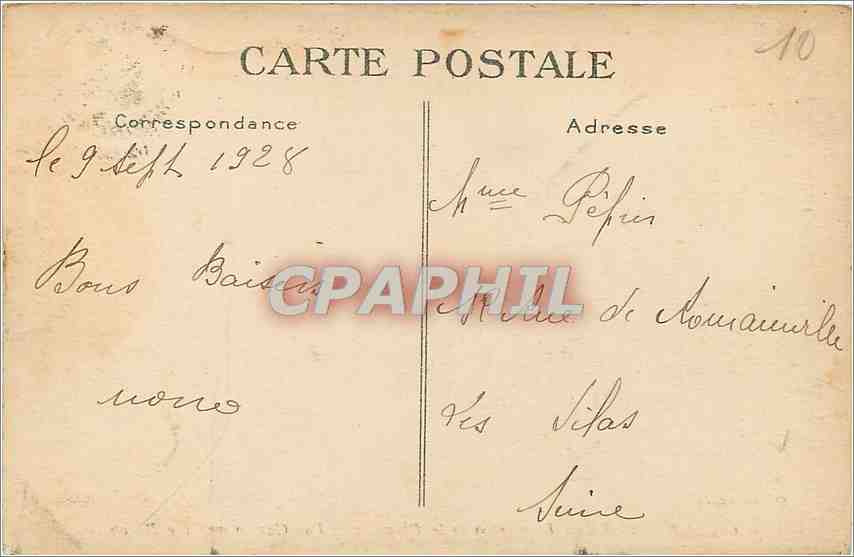 10
CARTE POSTALE
Correspondance
le 9 Sept 1928
Bons Baisers
nono
Adresse
Mme Pépin
Rue de Romainville
Les Lilas
Seine
CPAPHIL